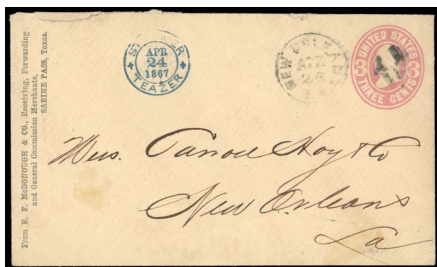 From R. F. McDONOUGH & CO., Receiving, Forwarding
and General Commission Merchants,
SABINE PASS, Texas.
STEAMER
APR
24
1867
TEAZER
NEW ORLEANS
APR
26
UNITED STATES
3 3
THREE CENTS
Hoy & Co
New Orleans
La